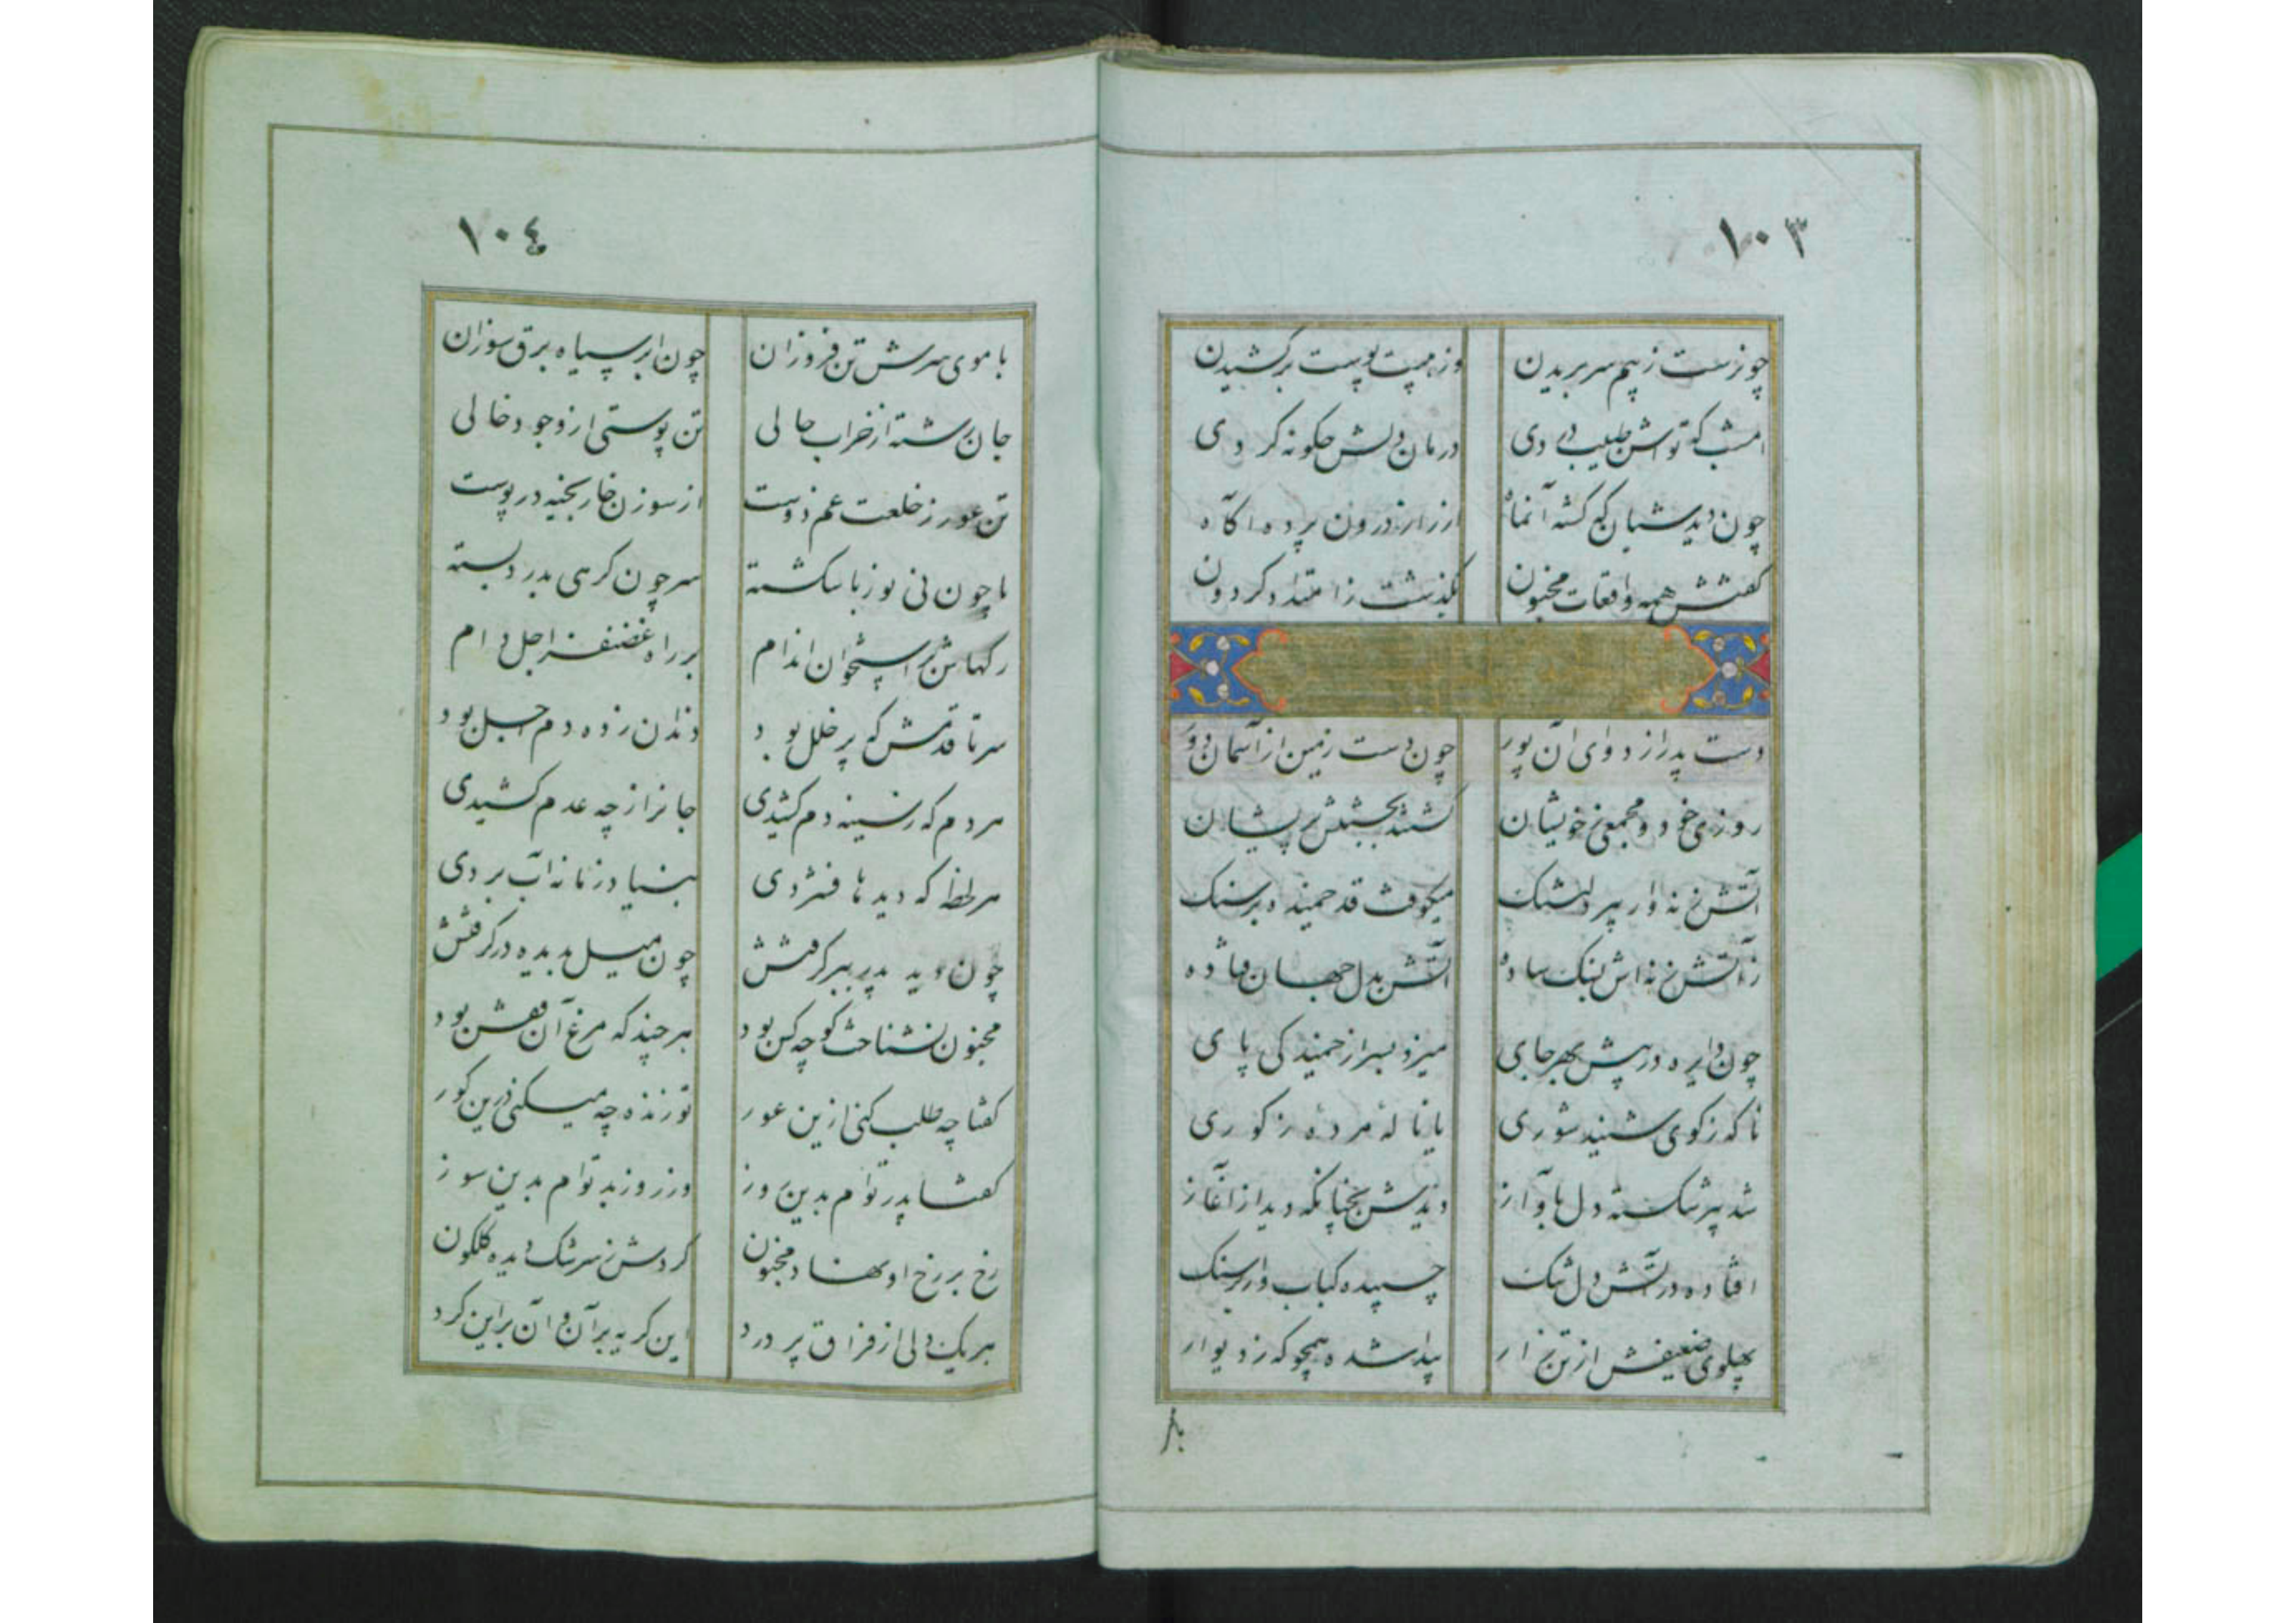 ١٠٣
چونرست ز بیم سر بریدن وز هیبت پوست برکشیدن
امشب که تواش طبیب بودی درمان دلش چکونه کردی
چون دید شبان که کشته آنماه از راز درون پرده آکاه
کفتش همه واقعات مجنون بکذشت ز امتداد کردون
دست پدر از دوای آن پور چون دست زمین از آسمان دور
روزی خود و مجمعی ز خویشان کشتند بجستنش پریشان
آتش زنه وار پیر دلتنک میکوفت قد خمیده بر سنک
ز آتش زنه اش بسنک ساده آتش بدل جهان فتاده
چون دایره در پیش بهر جای میزد بسر از خمیدکی پای
ناکه ز کوی شنید شوری یا ناله مرده ز کوری
شد پیر شکسته دل بآواز دیدش نچنانکه دید از آغاز
افتاده در آتش دل تنک چسپیده کباب وار بر سنک
پهلوی ضعیفش از تن زار پیدا شده همچو که ز دیوار
با
١٠٤
با موی سرش تن فروزان چون ابر سیاه برق سوزان
جان رشته از خراب حالی تن پوستی از وجود خالی
تن عور ز خلعت غم دوست از سوزن خار بخیه در پوست
پا چون نی بوریا شکسته سر چون کرهی بدرد بسته
رکهاش بر استخوان اندام بر راه غضنفر اجل دام
سر تا قدمش که پر خلل بود دندان زده دم اجل بود
هر دم که ز سینه دم کشیدی جانرا ز چه عدم کشیدی
هر لحظه که دیدها فشردی بنیاد زمانه آب بردی
چون دید پدر ببر کرفتش چون میل بدیده در کرفتش
مجنون نشناخت کو چه کس بود هر چند که مرغ آن قفس بود
کفتا چه طلب کنی ازین عور تو زنده چه میکنی درین کور
کفتا پدر توام بدین روز وز روز بد توام بدین سوز
رخ بر رخ او نهاد مجنون کردش ز سرشک دیده کلکون
هر یک دلی از فراق پر درد این کریه بر آن و آن بر این کرد